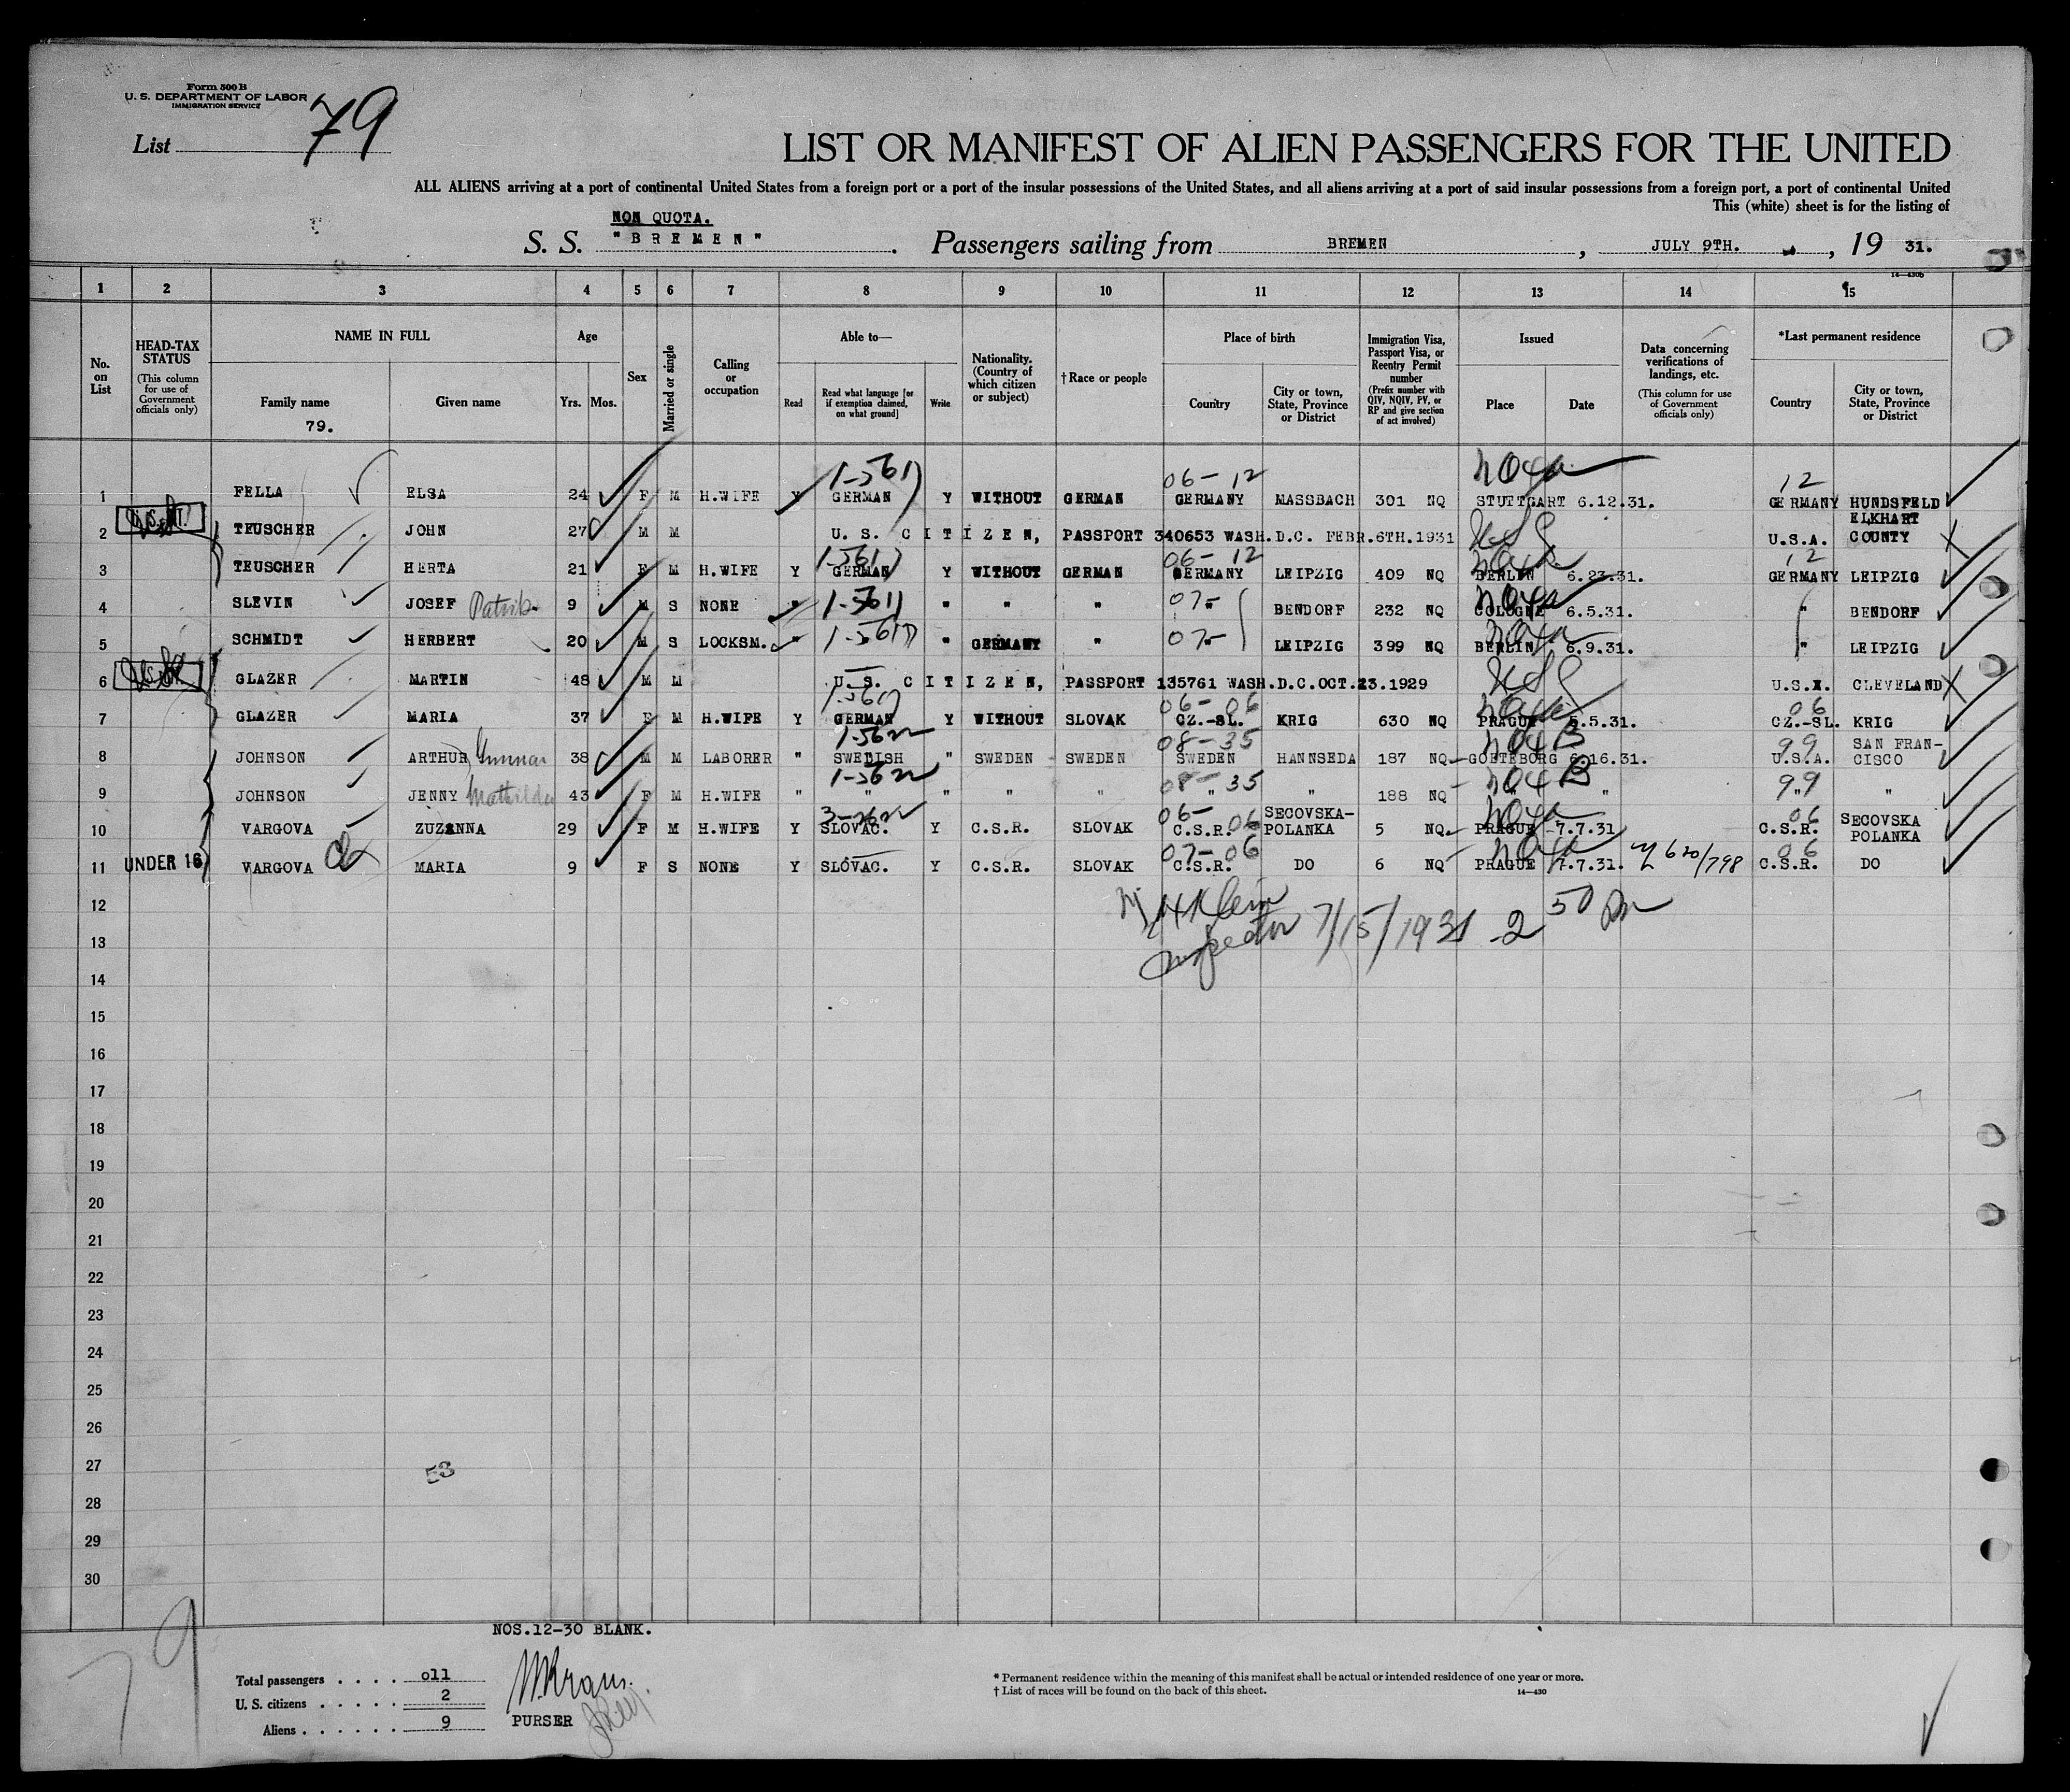 Form 500 B
U. S. DEPARTMENT OF LABOR
IMMIGRATION SERVICE
List 79
LIST OR MANIFEST OF ALIEN PASSENGERS FOR THE UNITED
ALL ALIENS arriving at a port of continental United States from a foreign port or a port of the insular possessions of the United States, and all aliens arriving at a port of said insular possessions from a foreign port, a port of continental United
This (white) sheet is for the listing of
NON QUOTA.
S. S. "BREMEN" . Passengers sailing from BREMEN , JULY 9TH. , 19 31.
14—430b
1 2 3 4 5 6 7 8 9 10 11 12 13 14 15
No. on List
HEAD-TAX STATUS (This column for use of Government officials only)
NAME IN FULL
Family name
Given name
79.
Age
Yrs. Mos.
Sex
Married or single
Calling or occupation
Able to—
Read
Read what language [or if exemption claimed, on what ground]
Write
Nationality. (Country of which citizen or subject)
† Race or people
Place of birth
Country
City or town, State, Province or District
Immigration Visa, Passport Visa, or Reentry Permit number (Prefix number with QIV, NQIV, PV, or RP and give section of act involved)
Issued
Place
Date
Data concerning verifications of landings, etc. (This column for use of Government officials only)
*Last permanent residence
Country
City or town, State, Province or District
06-12 12
1 FELLA ELSA 24 F M H.WIFE Y GERMAN Y WITHOUT GERMAN GERMANY MASSBACH 301 NQ STUTTGART 6.12.31. GERMANY HUNDSFELD
2 TEUSCHER JOHN 27 M M U. S. CITIZEN, PASSPORT 340653 WASH.D.C. FEBR.6TH.1931 U.S.A. ELKHART COUNTY
06-12 12
3 TEUSCHER HERTA 21 F M H.WIFE Y GERMAN Y WITHOUT GERMAN GERMANY LEIPZIG 409 NQ BERLIN 6.23.31. GERMANY LEIPZIG
4 SLEVIN JOSEF Patrik 9 M S NONE " " " " 07- BENDORF 232 NQ COLOGNE 6.5.31. " BENDORF
5 SCHMIDT HERBERT 20 M S LOCKSM. " " GERMANY " 07- LEIPZIG 399 NQ BERLIN 6.9.31. " LEIPZIG
6 GLAZER MARTIN 48 M M U. S. CITIZEN, PASSPORT 135761 WASH.D.C.OCT.23.1929 U.S.A. CLEVELAND
06-06 06
7 GLAZER MARIA 37 F M H.WIFE Y GERMAN Y WITHOUT SLOVAK CZ.-SL. KRIG 630 NQ PRAGUE 5.5.31. CZ.-SL. KRIG
08-35 99
8 JOHNSON ARTHUR Gunnar 38 M M LABORER " SWEDISH " SWEDEN SWEDEN SWEDEN HANNSEDA 187 NQ GOETEBORG 6.16.31. U.S.A. SAN FRAN-CISCO
08-35 99
9 JOHNSON JENNY Mathilda 43 F M H.WIFE " " " " " " " 188 NQ " " " "
06-06 06
10 VARGOVA ZUZANNA 29 F M H.WIFE Y SLOVAC. Y C.S.R. SLOVAK C.S.R. SECOVSKA-POLANKA 5 NQ. PRAGUE 7.7.31 C.S.R. SECOVSKA POLANKA
07-06 06
11 UNDER 16 VARGOVA MARIA 9 F S NONE Y SLOVAC. Y C.S.R. SLOVAK C.S.R. DO 6 NQ PRAGUE 7.7.31. 620/798 C.S.R. DO
12
Klein
13
Inspector 7/15/1931 2 50 Pm
14
15
16
17
18
19
20
21
22
23
24
25
26
27
53
28
29
30
79
NOS.12-30 BLANK.
Total passengers . . . . o11
U. S. citizens . . . . . 2
Aliens . . . . . . 9
PURSER
* Permanent residence within the meaning of this manifest shall be actual or intended residence of one year or more.
† List of races will be found on the back of this sheet.
14—430